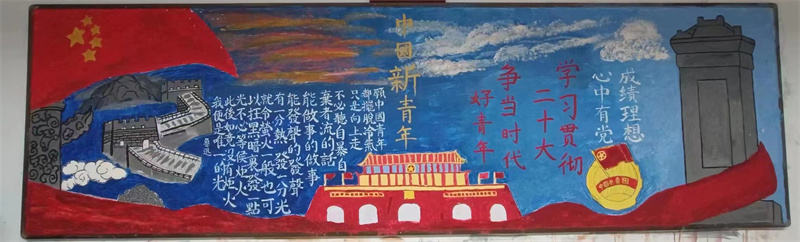 成績理想
心中有党
学习贯彻
二十大
争当时代
好青年
中国共青团
中國新青年
願中國青年
都擺脫冷氣
只是向上走
不必聽自暴自
棄者流的話
能做事的做事
能發聲的發聲
有一分熱發一分光
就令螢火一般也可
以在黑暗裏發一點
光不必等候炬火
此後如竟沒有炬火
我便是唯一的光
魯迅